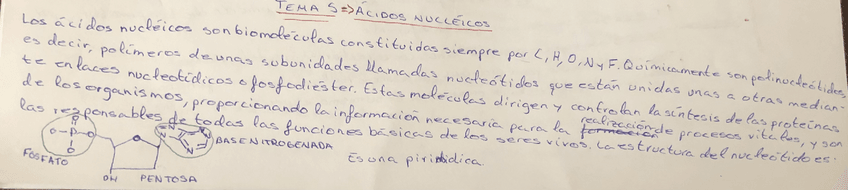 TEMA 5=>ÁCIDOS NUCLÉICOS
Los ácidos nucléicos son biomoléculas constituidas siempre por C, H, O, N y F. Químicamente son polinucleótidos,
es decir, polímeros de unas subunidades llamadas nucleótidos que están unidas unas a otras median-
te enlaces nucleotídicos o fosfodiéster. Estas moléculas dirigen y controlan la síntesis de las proteínas
de los organismos, proporcionando la información necesaria para la realización de procesos vitales, y son
las responsables de todas las funciones básicas de los seres vivos. La estructura del nucleótido es:
O-P-O
O
O
O
N
N
N
N
BASE NITROGENADA
FOSFATO
Es una pirimídica.
OH PENTOSA